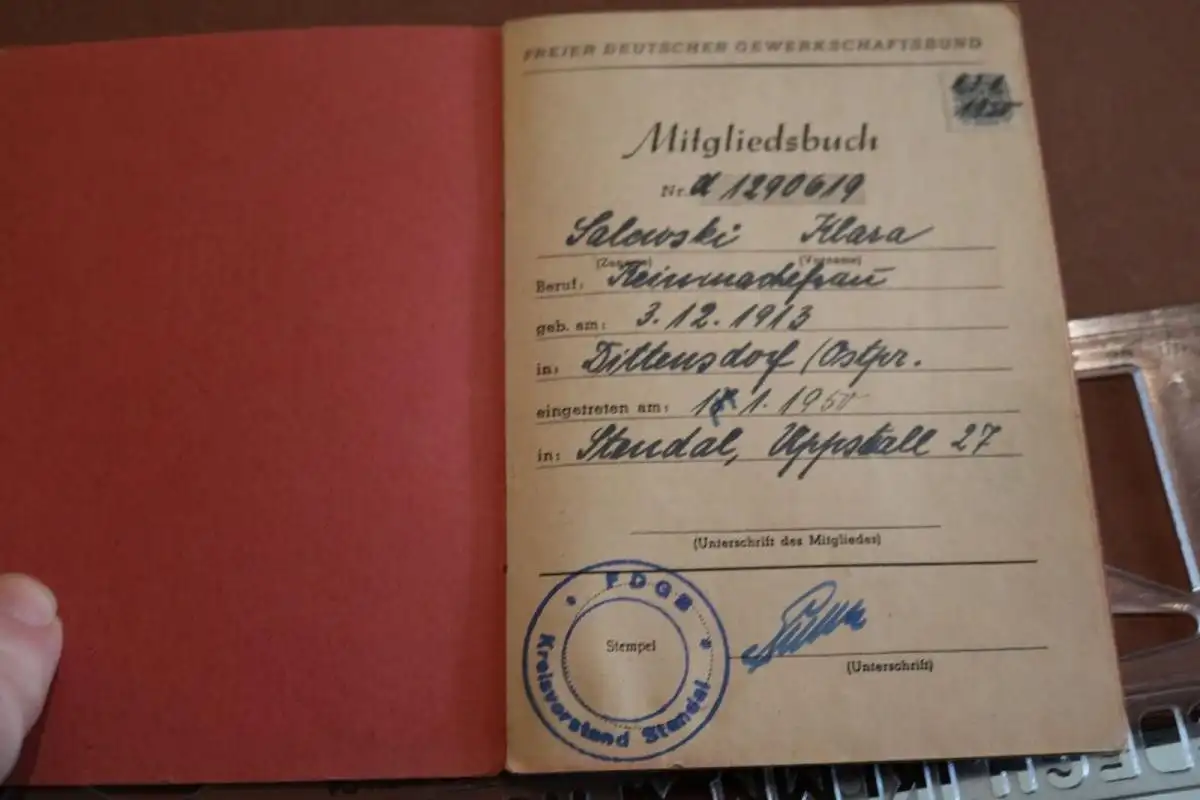 FREIER DEUTSCHER GEWERKSCHAFTSBUND
Mitgliedsbuch
Nr. A 1290619
Salewski Klara
(Zuname) (Vorname)
Beruf: Reinmachefrau
geb. am: 3.12.1913
in: Dittensdorf (Ostpr.
eingetreten am: 1. 1950
in: Stendal, Uppstall 27
(Unterschrift des Mitgliedes)
FDGB
Stempel
Kreisvorstand Stendal
(Unterschrift)